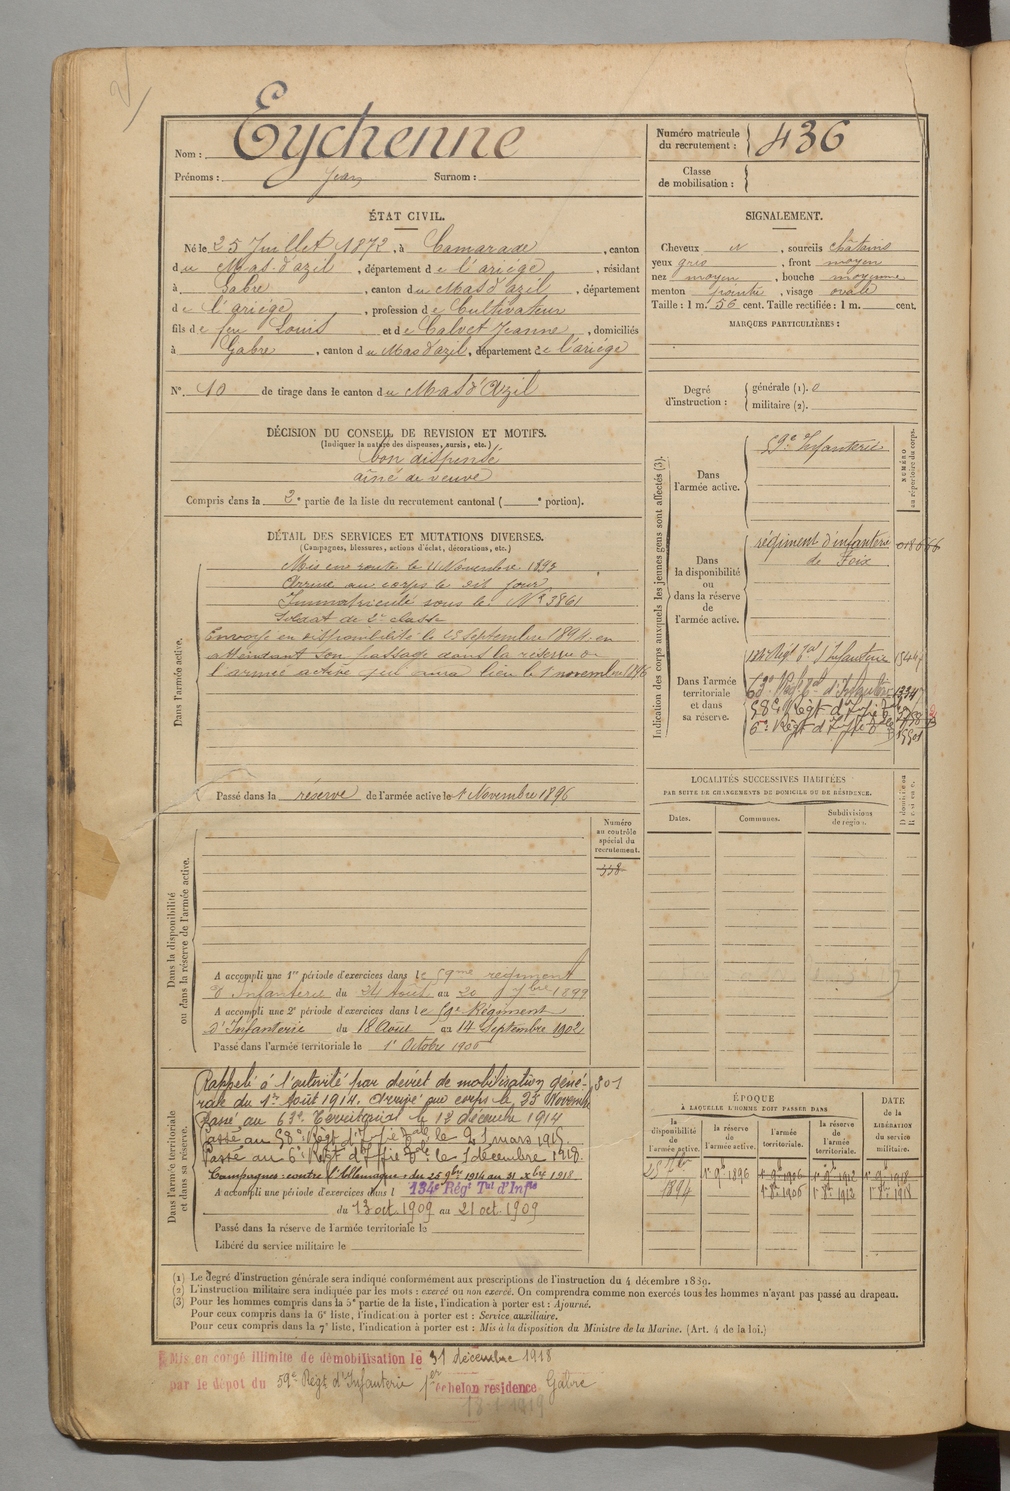 Nom : Eychenne
Prénoms : Jean Surnom :
Numéro matricule du recrutement : 436
Classe de mobilisation :
ÉTAT CIVIL.
Né le 25 Juillet 1872, à Camarade, canton
du Mas-d'azil, département de l'ariège, résidant
à Gabre, canton du Mas d'azil, département
de l'ariège, profession de Cultivateur
fils de feu Louis et de Calvet Jeanne, domiciliés
à Gabre, canton du Mas d'azil, département de l'ariége
N°. 10 de tirage dans le canton du Mas d'Azil
SIGNALEMENT.
Cheveux N, sourcils châtains
yeux gris, front moyen
nez moyen, bouche moyenne
menton pointu, visage ovale
Taille : 1 m. 56 cent. Taille rectifiée : 1 m. cent.
MARQUES PARTICULIÈRES :
Degré d'instruction : générale (1). 0
militaire (2).
DÉCISION DU CONSEIL DE REVISION ET MOTIFS.
(Indiquer la nature des dispenses, sursis, etc.)
bon dispensé
aîné de veuve
Compris dans la 2e partie de la liste du recrutement cantonal ( e portion).
DÉTAIL DES SERVICES ET MUTATIONS DIVERSES.
(Campagnes, blessures, actions d'éclat, décorations, etc.)
Dans l'armée active.
Mis en route le 11 Novembre 1893
Arrivé au corps le dit jour
Immatriculé sous le N° 3861
Soldat de 2e classe
Envoyé en disponibilité le 25 Septembre 1894 en
attendant son passage dans la réserve de
l'armée active qui aura lieu le 1 novembre 1896
Passé dans la réserve de l'armée active le 1 Novembre 1896
Indication des corps auxquels les jeunes gens sont affectés (3).
NUMÉRO au répertoire du corps.
Dans l'armée active.
59e Infanterie
Dans la disponibilité ou dans la réserve de l'armée active.
régiment d'infanterie
de Foix
Dans l'armée territoriale et dans sa réserve.
134e Régt Tal d'Infanterie
63e Régt Tal d'Infanterie
58e Régt d'Ifie Tale
6e Régt d'Ifie Tale
LOCALITÉS SUCCESSIVES HABITÉES
PAR SUITE DE CHANGEMENTS DE DOMICILE OU DE RÉSIDENCE.
Dates. Communes. Subdivisions de région.
Dans la disponibilité ou dans la réserve de l'armée active.
Numéro au contrôle spécial du recrutement.
A accompli une 1re période d'exercices dans le 59me régiment
d'Infanterie du 24 Août au 20 7bre 1899
A accompli une 2e période d'exercices dans le 59e Régiment
d'Infanterie du 18 Aout au 14 Septembre 1902
Passé dans l'armée territoriale le 1 Octobre 1906
Dans l'armée territoriale et dans sa réserve.
Rappelé à l'activité par décret de mobilisation géné- 301
rale du 1er Août 1914. Arrivé au corps le 25 Novembre
Passé au 63e Territorial le 12 décembre 1914
Passé au 58e Régt d'Ifie Tale le 21 mars 1915.
Passé au 6e Régt d'Ifie Tale le 1 décembre 1918.
Campagnes : contre l'Allemagne : du 25 9bre 1914 au 31 Xbre 1918
A accompli une période d'exercices dans l 134e Régt Tal d'Infie
du 13 oct. 1909 au 21 oct. 1909
Passé dans la réserve de l'armée territoriale le
Libéré du service militaire le
ÉPOQUE
À LAQUELLE L'HOMME DOIT PASSER DANS
la disponibilité de l'armée active. la réserve de l'armée active. l'armée territoriale. la réserve de l'armée territoriale. DATE de la LIBÉRATION du service militaire.
(1) Le degré d'instruction générale sera indiqué conformément aux prescriptions de l'instruction du 4 décembre 1889.
(2) L'instruction militaire sera indiquée par les mots : exercé ou non exercé. On comprendra comme non exercés tous les hommes n'ayant pas passé au drapeau.
(3) Pour les hommes compris dans la 5e partie de la liste, l'indication à porter est : Ajourné.
Pour ceux compris dans la 6e liste, l'indication à porter est : Service auxiliaire.
Pour ceux compris dans la 7e liste, l'indication à porter est : Mis à la disposition du Ministre de la Marine. (Art. 4 de la loi.)
Mis en congé illimité de démobilisation le 31 décembre 1918
par le dépot du 59e Régt d'Infanterie 1er échelon residence Gabre